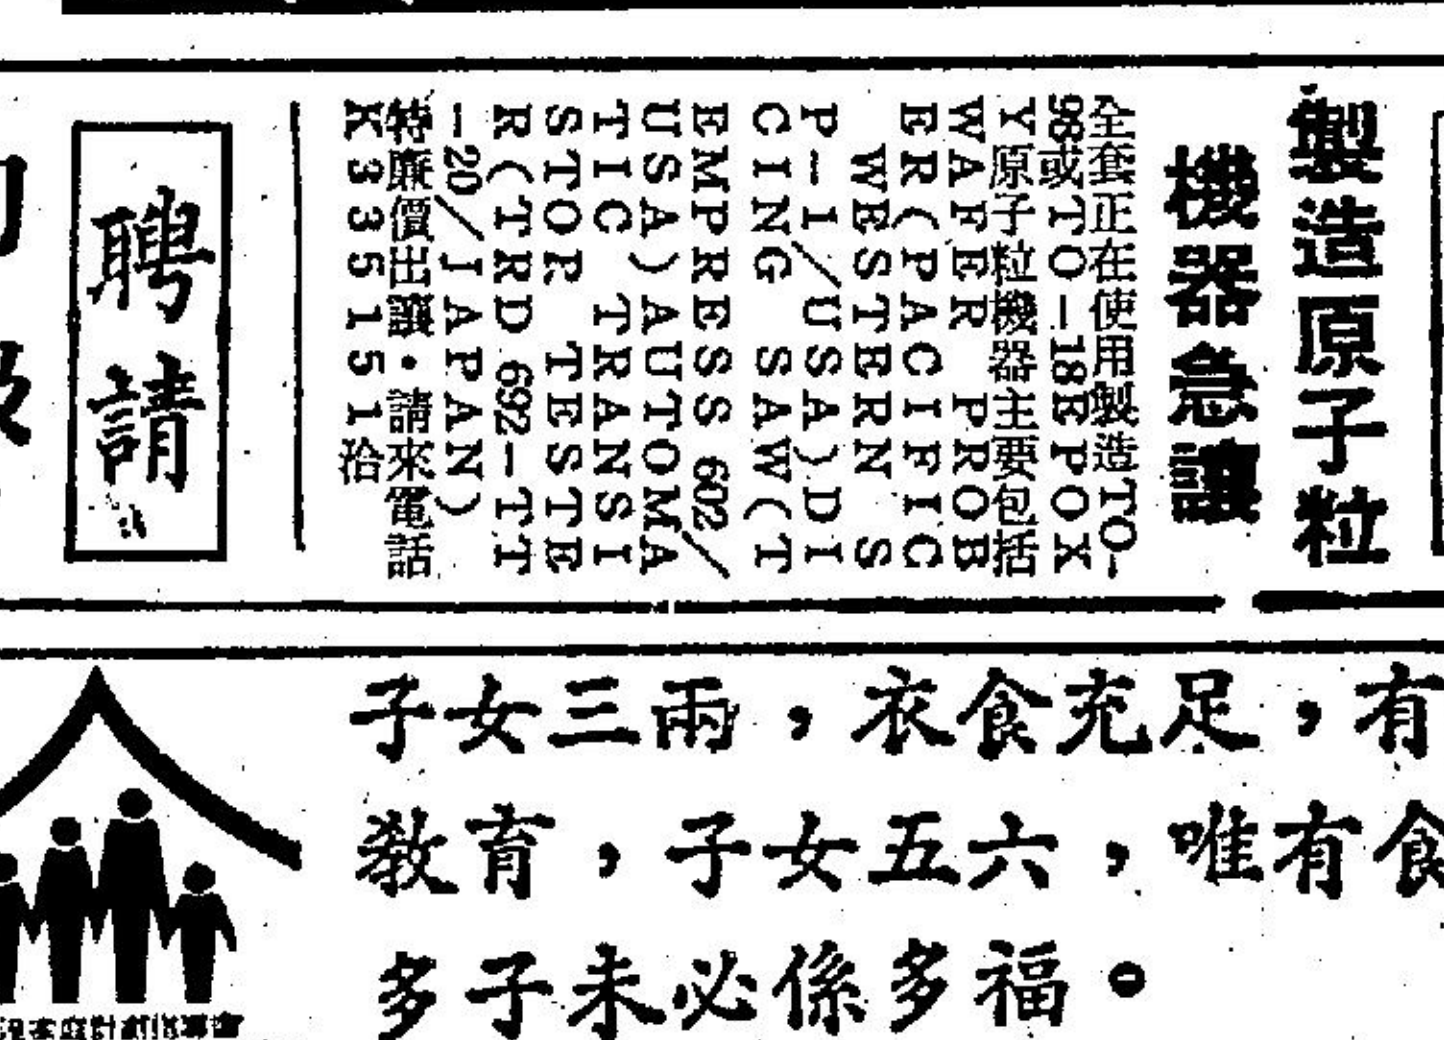 製造原子粒
機器急讓
全套正在使用製造TO-
98或TO-18EPOX
Y原子粒機器主要包括
WAFER PROB
ER(PACIFIC
WESTERN S
P-1/USA)DI
CING SAW(T
EMPRESS 602/
USA)AUTOMA
TIC TRANSI
STOR TESTE
R(TRD 692-TT
-20/JAPAN)
特廉價出讓・請來電話
K335151洽
聘請
子女三兩，衣食充足，有
教育，子女五六，唯有食
多子未必係多福。